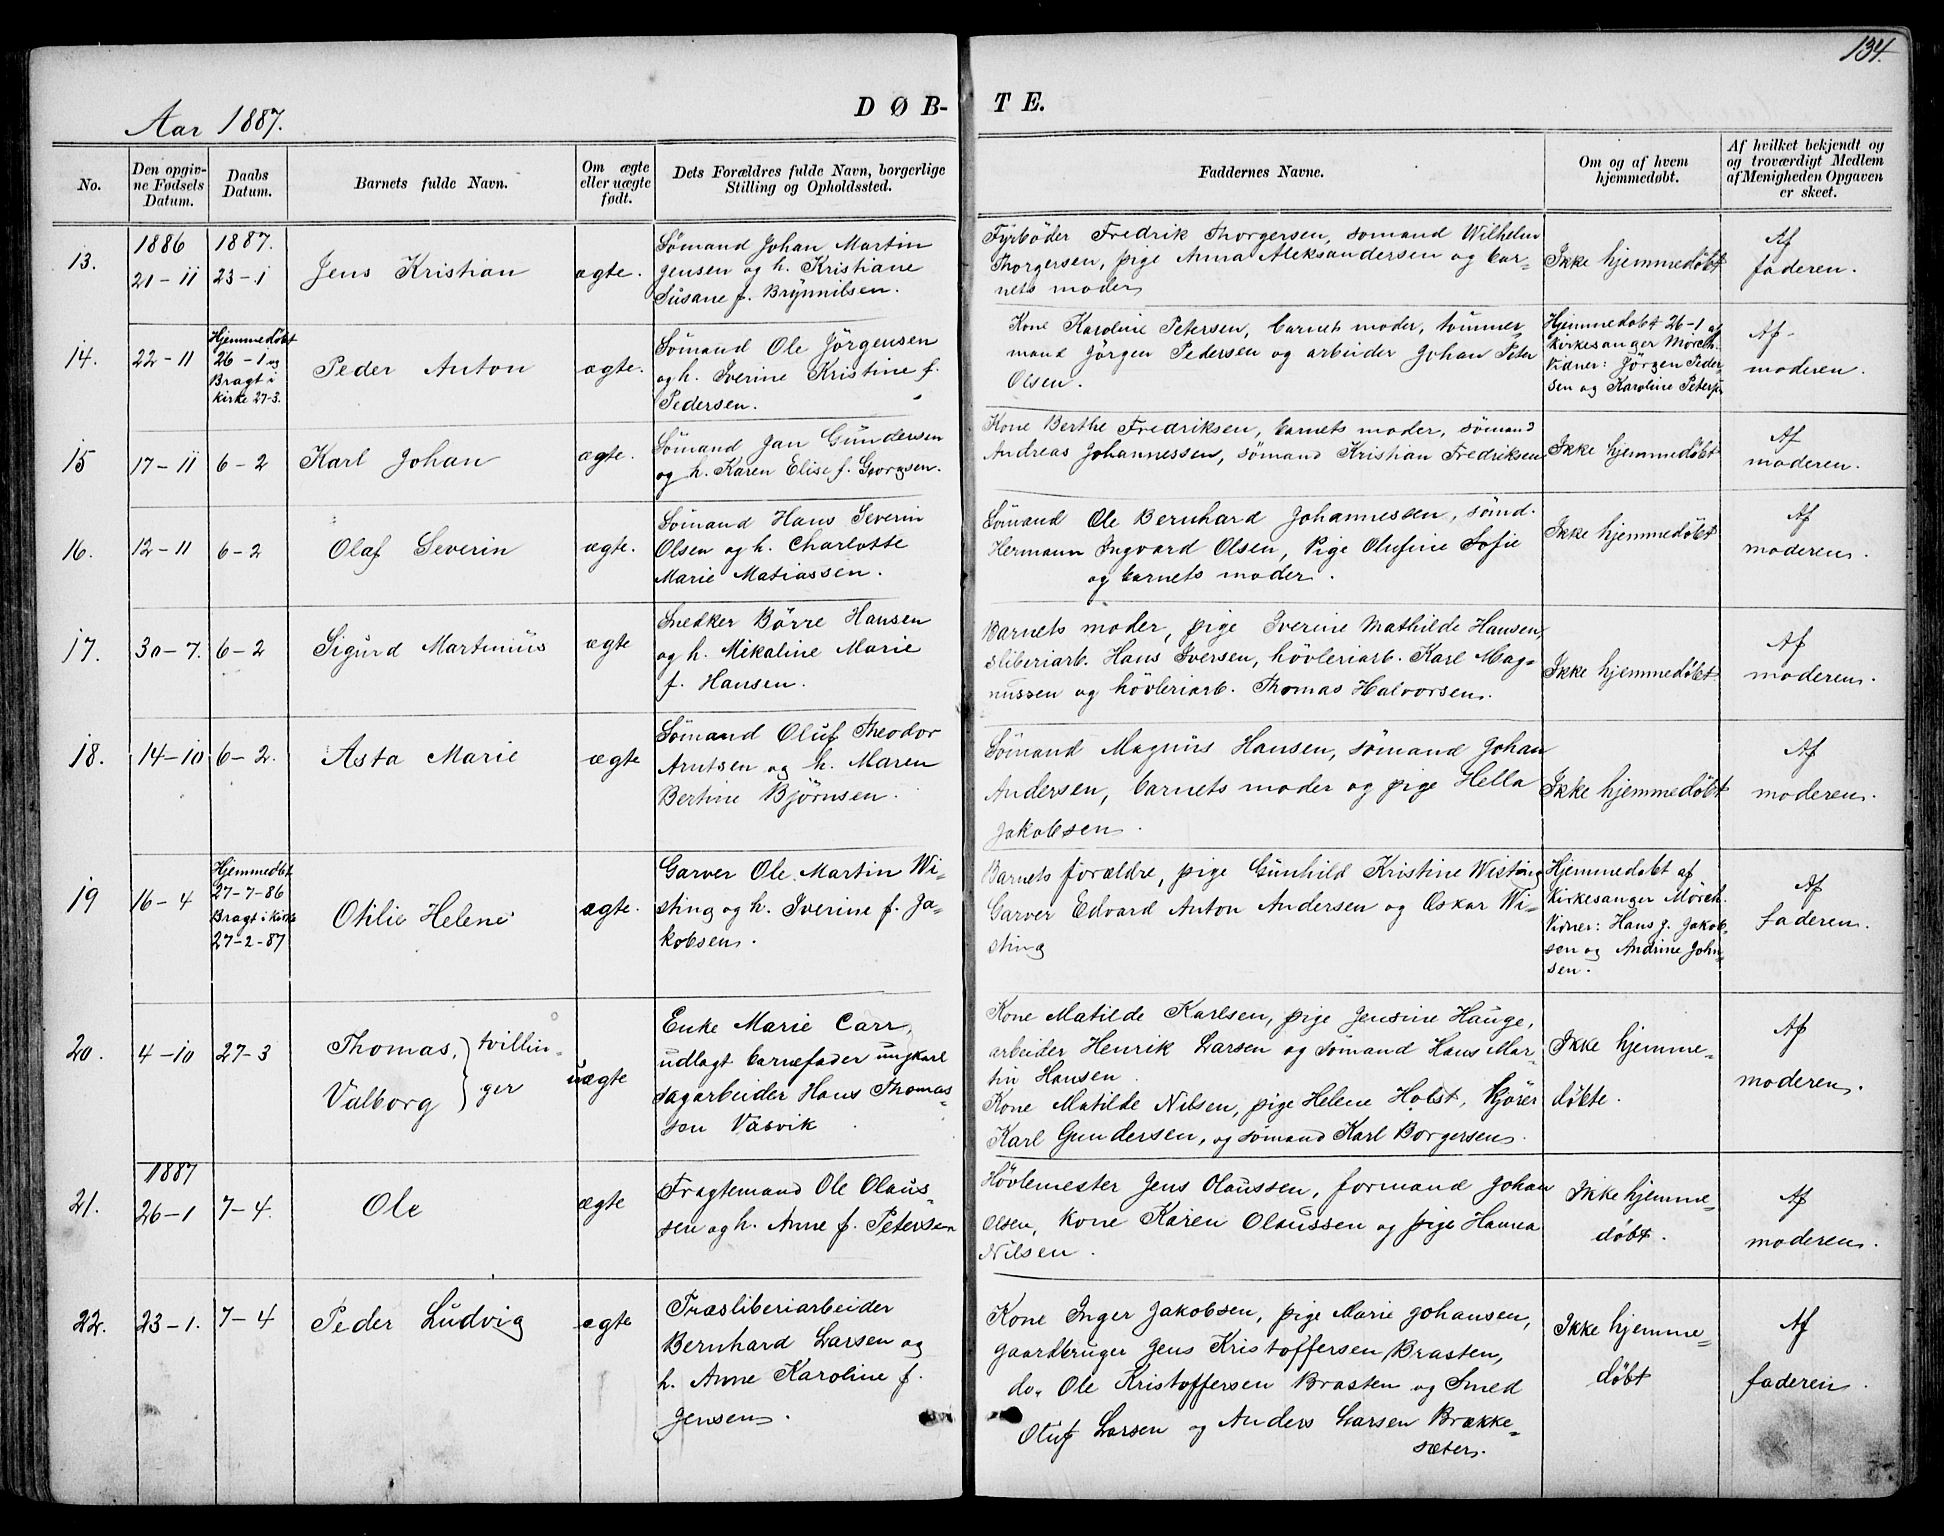 134.
DØB-
TE.
Aar 1887.
No.
Den opgiv-
ne Fødsels
Datum.
Daabs
Datum.
Barnets fulde Navn.
Om ægte
eller uægte
født.
Dets Forældres fulde Navn, borgerlige
Stilling og Opholdssted.
Faddernes Navne.
Om og af hvem
hjemmedøbt.
Af hvilket bekjendt og
og troværdigt Medlem
af Menigheden Opgaven
er skeet.
13.
1886
21-11
1887.
23-1
Jens Kristian
ægte.
Sømand Johan Martin
Jensen og h. Kristiane
Susane f. Brynnilsen.
Fyrbøder Fredrik Thorgersen, sømand Wilhelm
Thorgersen, pige Anna Aleksandersen og bar-
nets moder
Ikke hjemmedøbt
Af
faderen.
14.
22-11
Hjemmedøbt
26-1 og
Bragt i
kirke 27-3.
Peder Anton
ægte.
Sømand Ole Jørgensen
og h. Iverine Kristine f.
Pedersen.
Kone Karoline Petersen, barnets moder, tømmer
mand Jörgen Pedersen og arbeider Johan Peter
Olsen.
Hjemmedøbt 26-1 af
Kirkesanger Mörch.
Vidner: Jörgen Peder-
sen og Karoline Peters
Af
moderen.
15
17-11
6-2
Karl Johan
ægte.
Sømand Jan Gundersen
og h. Karen Elise f. Georgsen.
Kone Berthe Fredriksen, barnets moder, sömand
Andreas Johannessen, sömand Kristian Fredriksen
Ikke hjemmedøbt
Af
moderen.
16.
12-11
6-2
Olaf Severin
ægte.
Sømand Hans Severin
Olsen og h. Charlotte
Marie Matiassen.
Sømand Ole Bernhard Johannessen, sømd.
Hermann Ingvard Olsen, Pige Olufine Sofie
og barnets moder.
Ikke hjemmedøbt
Af
moderen.
17.
30-7.
6-2
Sigurd Martinius
ægte
Snedker Börre Hansen
og h. Mikaline Marie
f. Hansen.
Barnets moder, pige Iverine Mathilde Hansen,
sliberiarb. Hans Iversen, hövleriarb. Karl Mag-
nussen og hövleriarb. Thomas Halvorsen.
Ikke hjemmedøbt
Af
moderen.
18.
14-10
6-2.
Asta Marie
ægte
Sømand Oluf Theodor
Arntsen og h. Maren
Bertine Björnsen.
Sømand Magnus Hansen, sömand Johan
Andersen, barnets moder og pige Hella
Jakobsen.
Ikke hjemmedøbt
Af
moderen.
19
16-4
Hjemmedøbt
27-7-86
Bragt i kirke
27-2-87
Otilie Helene
ægte.
Garver Ole Martin Wi-
sting og h. Iverine f. Ja-
kobsen.
Barnets forældre, pige Gunhild Kristine Wisting
Garver Edvard Anton Andersen og Oskar Wi-
sting
Hjemmedøbt af
Kirkesanger Mörch.
Vidner: Hans J. Jakob-
sen og Andrine John-
sen.
Af
faderen.
20.
4-10
27-3
Thomas, } tvillin-
Valborg } ger
uægte
Enke Marie Carr,
udlagt barnefader ungkarl
sagarbeider Hans Thomas-
sen Vasvik
Kone Matilde Karlsen, pige Jensine Hauge,
arbeider Henrik Larsen og sømand Hans Mar-
tin Hansen.
Kone Matilde Nilsen, pige Helene Holst, kjører
Karl Gundersen, og sømand Karl Borgersen.
Ikke hjemme-
døbte.
Af
moderen.
21.
1887
26-1
7-4.
Ole
ægte
Fragtemand Ole Olaus-
sen og h. Anne f. Petersen
Høvlemester Jens Olaussen, formand Johan
Olsen, kone Karen Olaussen og pige Hanna
Nilsen.
Ikke hjemme-
døbt.
Af
moderen.
22.
23-1.
7-4
Peder Ludvig
ægte
Træsliberiarbeider
Bernhard Larsen og
h. Anne Karoline f.
Jensen.
Kone Inger Jakobsen, pige Marie Johansen,
gaardbruger Jens Kristoffersen Brasten,
do. Ole Kristoffersen Brasten og Smed
Oluf Larsen og Anders Larsen Brække-
sæter.
Ikke hjemme-
døbt
Af
faderen.